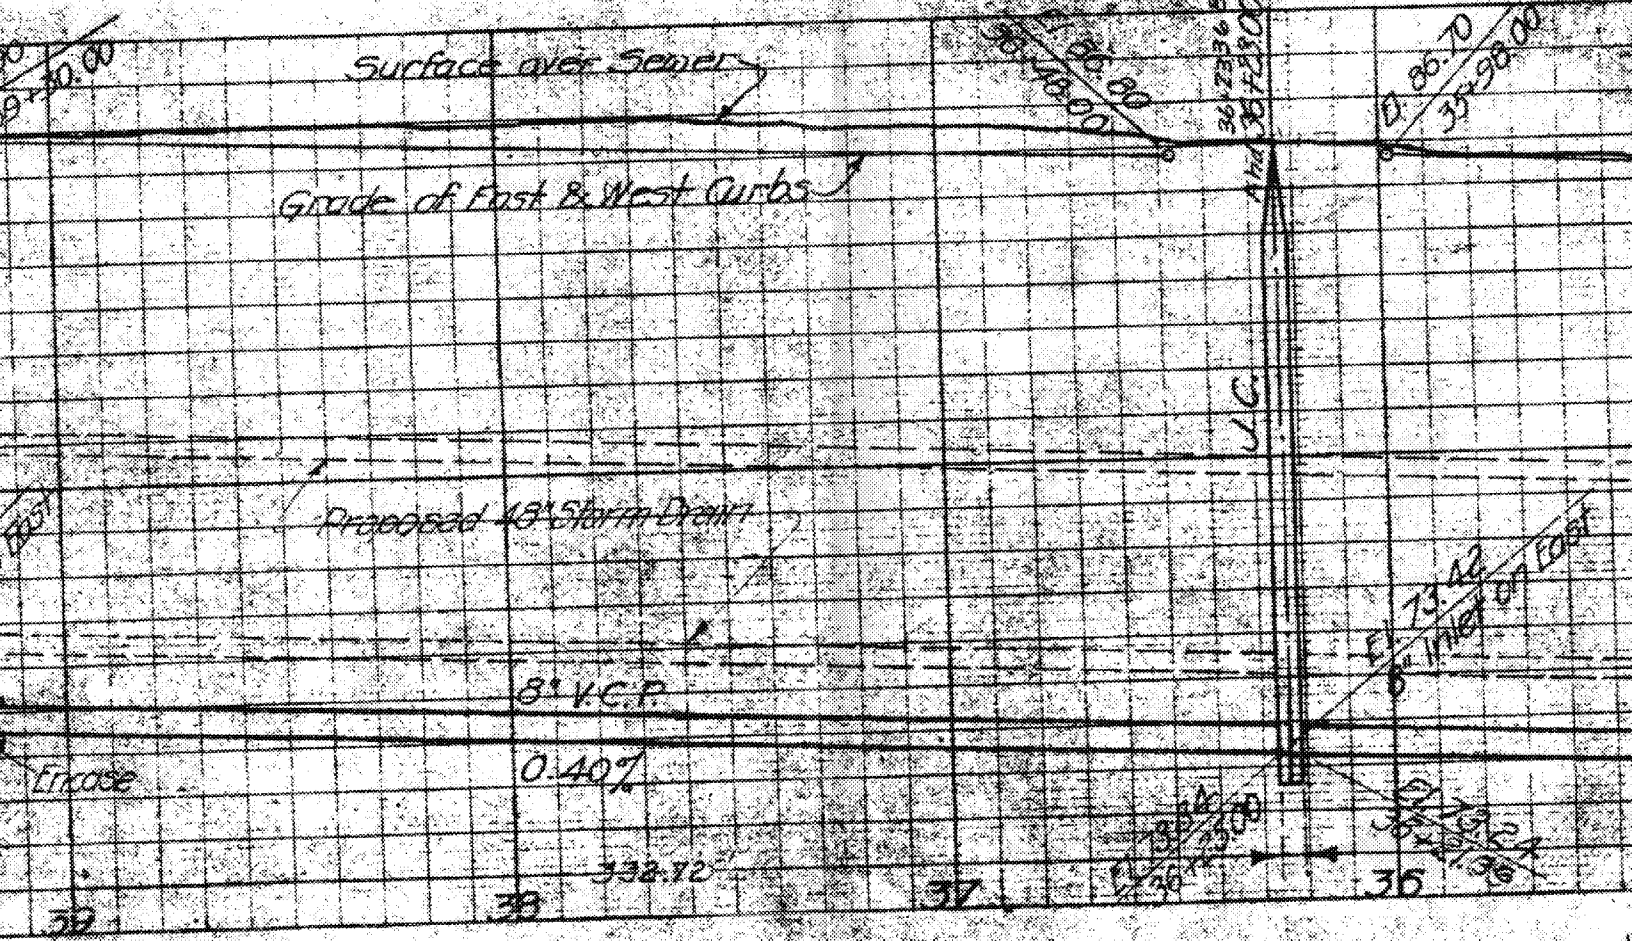 39+30.00
Surface over Sewer
36+48.00
86.80
Ahd 36+23.00
D. 86.70
35+98.00
Grade of East & West Curbs
J.C.
East
Proposed 48" Storm Drain
El. 73.42
6" Inlet on East
8" V.C.P.
Encase
0.40%
36+23.00
332.72
39
38
37
36